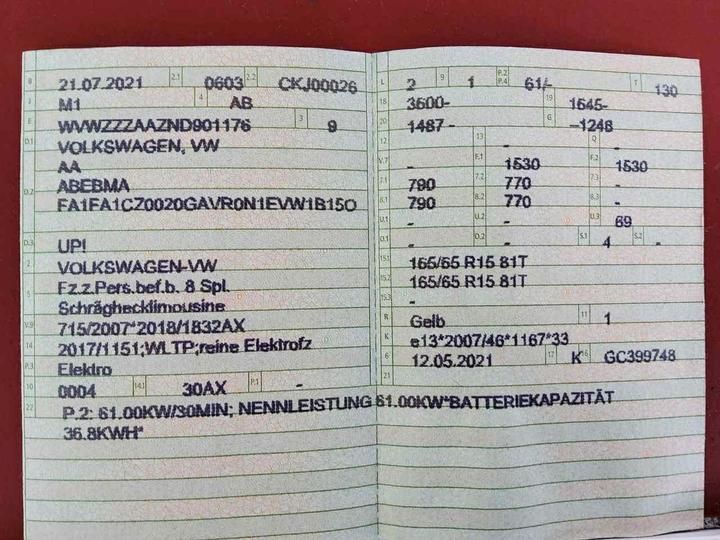 B 21.07.2021 2.1 0603 2.2 CKJ00026
J M1 4 AB
E WVWZZZAAZND901176 3 9
D.1 VOLKSWAGEN, VW
AA
D.2 ABEBMA
FA1FA1CZ0020GAVR0N1EVW1B15O
D.3 UP!
2 VOLKSWAGEN-VW
5 Fz.z.Pers.bef.b. 8 Spl.
Schräghecklimousine
V.9 715/2007*2018/1832AX
14 2017/1151;WLTP;reine Elektrofz
P.3 Elektro
10 0004 14.1 30AX P.1 -
22 P.2: 61.00KW/30MIN; NENNLEISTUNG 61.00KW*BATTERIEKAPAZITÄT
36.8KWH*
L 2 9 1 P.2 P.4 61/- T 130
18 3600- 19 1645-
20 1487 - G -1248
12 - 13 - Q -
V.7 - F.1 1530 F.2 1530
7.1 790 7.2 770 7.3 -
8.1 790 8.2 770 8.3 -
U.1 - U.2 - U.3 69
O.1 - O.2 - S.1 4 S.2 -
15.1 165/65 R15 81T
15.2 165/65 R15 81T
15.3 -
R Gelb 11 1
K e13*2007/46*1167*33
6 12.05.2021 17 K 16 GC399748
21